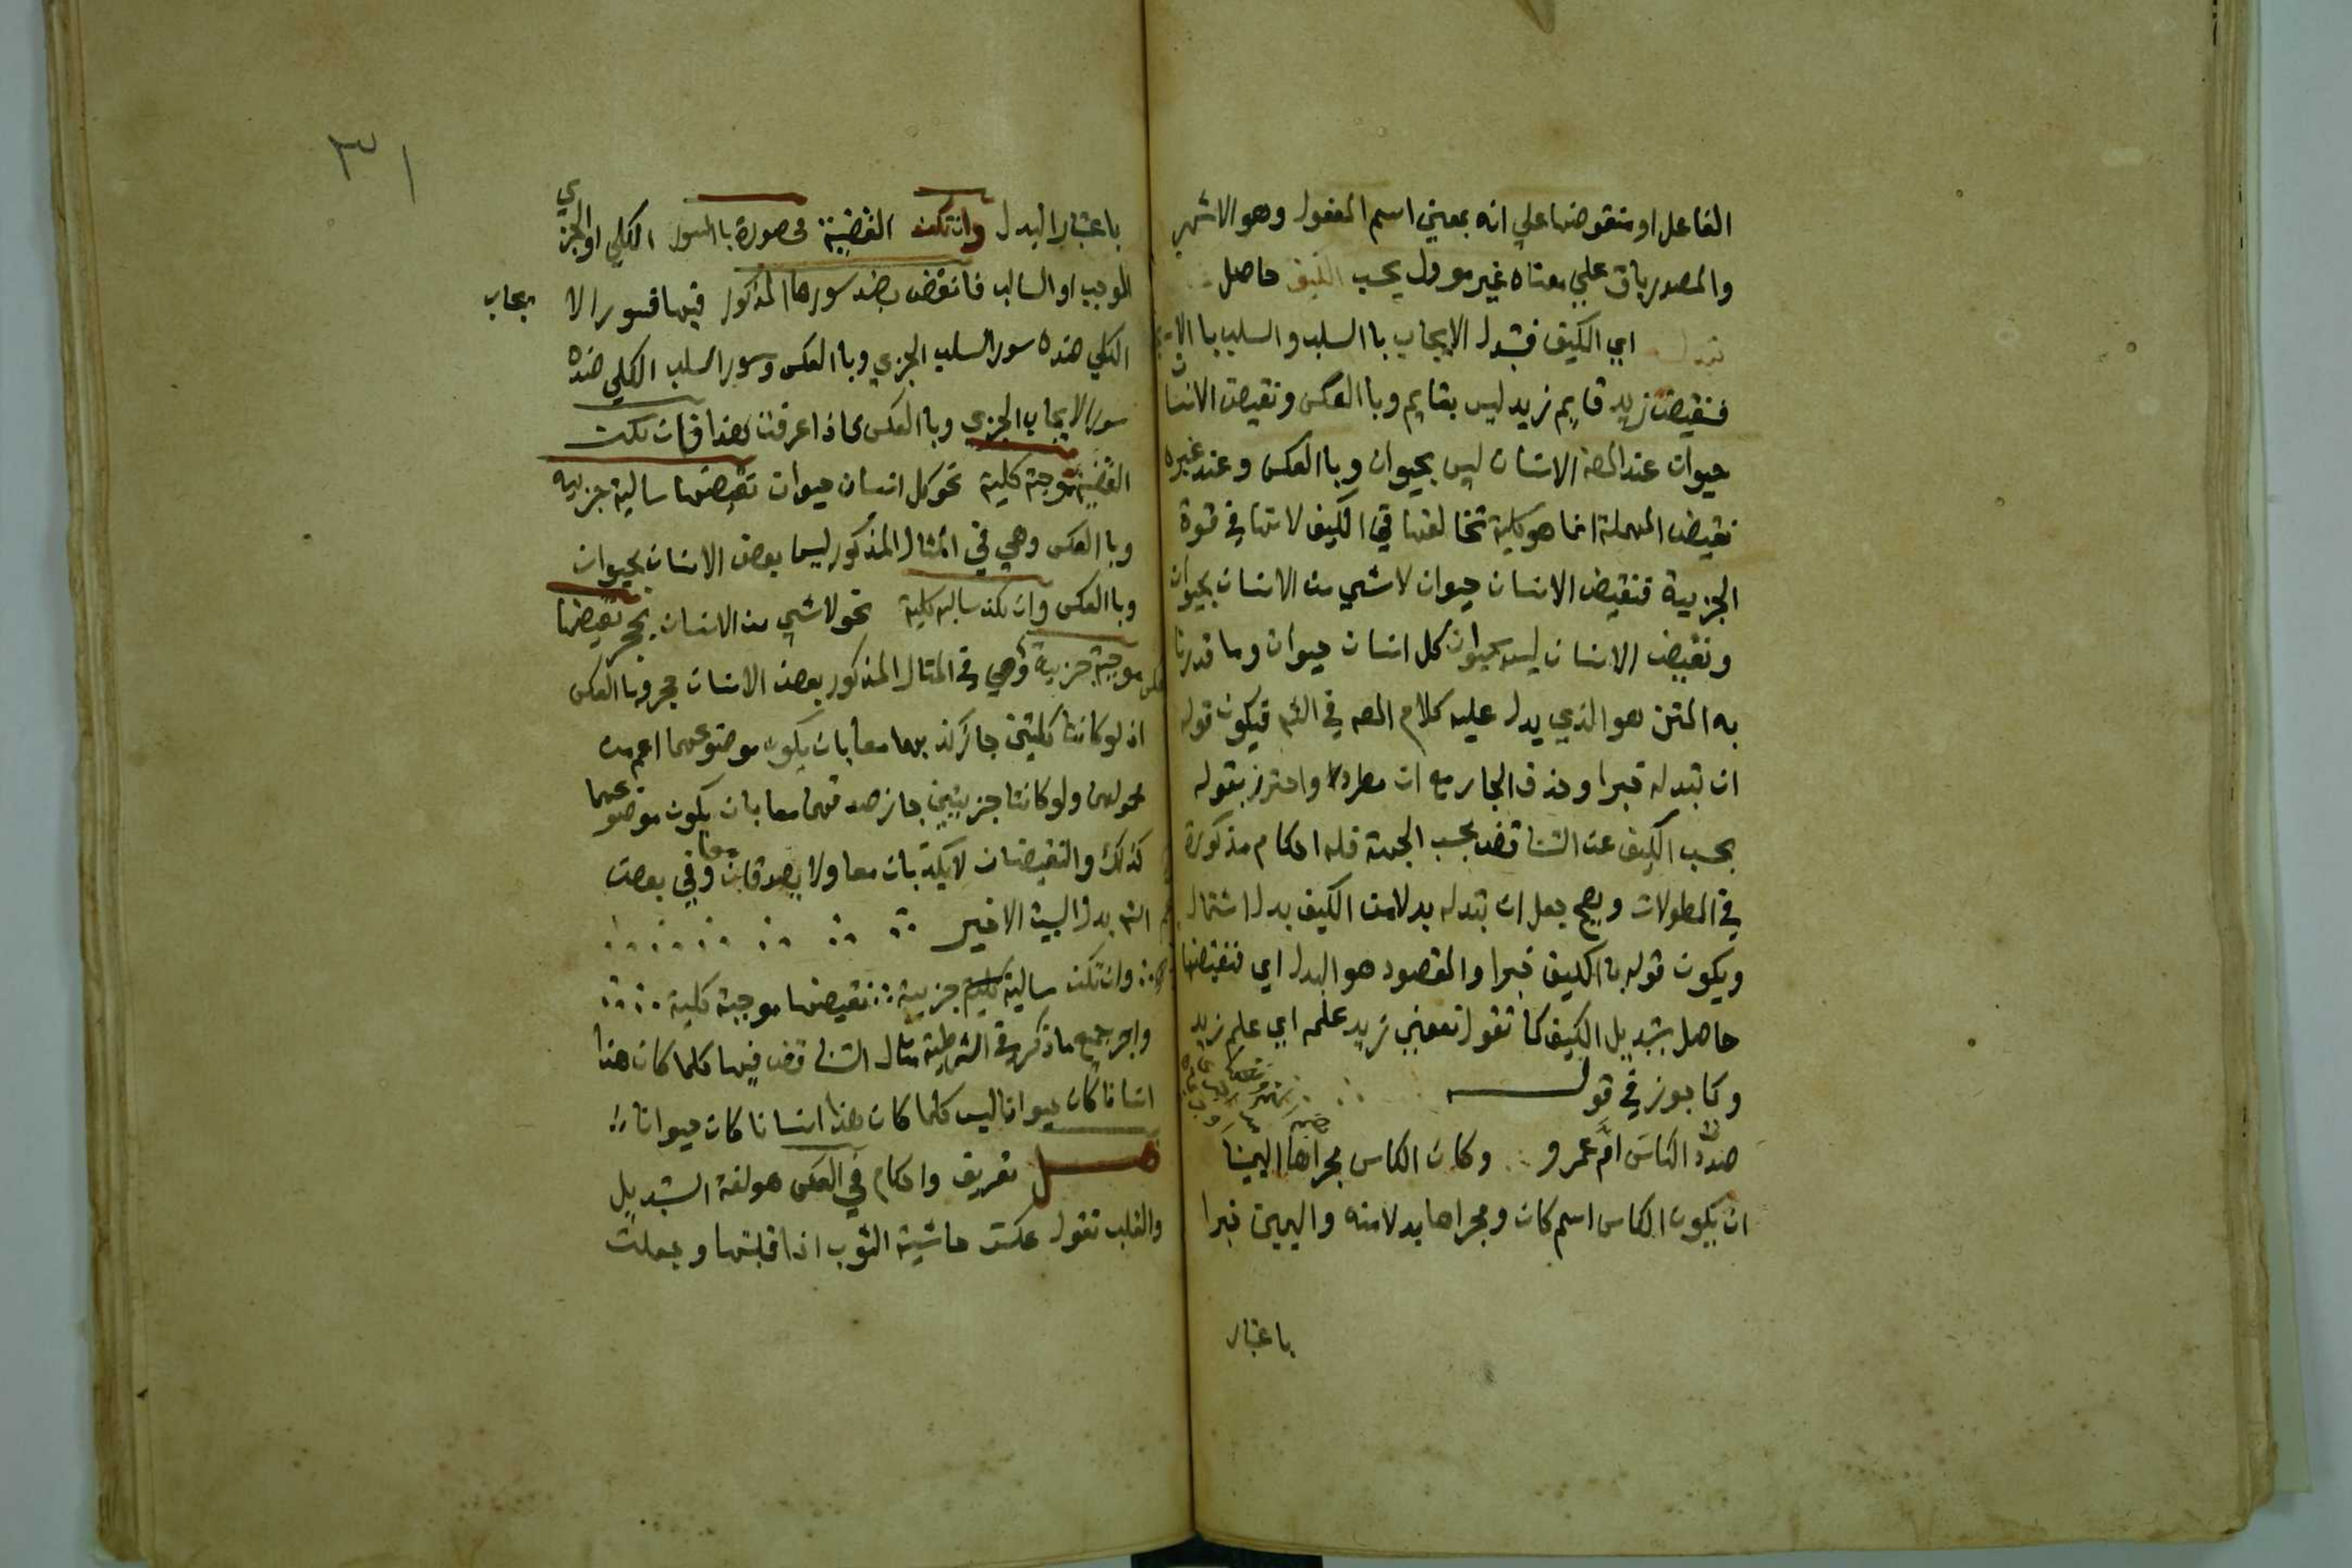 الفاعل او منقوضها علي انه بمعني اسم المفعول وهو الاشهر
والمصدر باق علي معناه غير موول بحسب الكيف حاصل
تبدله اي الكيف فتبدل الايجاب باالسلب والسلب باالايجاب
فنقيض زيد قايم زيد ليس بقايم وباالعكس ونقيض الانسان
حيوان عند المصه الانسان ليس بحيوان وباالعكس وعند غيره
نقيض المهملة انما هو كلية تخالفها في الكيف لانها في قوة
الجزيية فنقيض الانسان حيوان لاشي من الانسان بحيوان
ونقيض الانسان ليس بحيوان كل انسان حيوان وما قدرنا
به المتن هو الذي يدل عليه كلام المصه في الشر فيكون قوله
ان تبدله خبرا وحذف الجار مع ان مطردا واحترز بقوله
بحسب الكيف عن التناقض بحسب الجهة فله احكام مذكورة
في المطولات ويصح جعل ان تبدله بدلا من الكيف بدل اشتمال
ويكون قوله باالكيف خبرا والمقصود هو البدل اي فنقيضها
حاصل بتبديل الكيف كما تقول نفعني زيد علمه اي علم زيد
وكما جوز في قولـــه
صددت الكاس ام عمرو وكان الكاس مجراها اليمينا
ان يكون الكاس اسم كان ومجراها بدلا منه واليمين خبرا
باعتبار
٣١
باعتبار البدل وان تكن القضية محصورة باالسور الكلي او الجزي
الموجب او السالب فانقض بضد سورها المذكور فيها فسور الايجاب
الكلي ضده سور السلب الجزي وباالعكس وسور السلب الكلي ضده
سور الايجاب الجزي وباالعكس اذا عرفت هذا فان تكن
القضية موجبة كلية نحو كل انسان حيوان نقيضها سالبة جزييه
وباالعكس وهي في المثال المذكور ليس بعض الانسان بحيوان
وباالعكس وان تكن سالبه كلية نحو لاشي من الانسان بحجر نقيضها
موجبة جزيية وهي في المثال المذكور بعض الانسان حجر وباالعكس
اذ لو كانتا كليتين جاز كذبهما معا بان يكون موضوعهما اعم من
محولهما ولو كانتا جزييتين جاز صدقهما معا بان يكون موضوعهما
كذلك والنقيضان لا يكذبان معا ولا يصدقان معا وفي بعض
الشر بدل البيت الاخير
وان تكن سالبة كلية جزيية نقيضها موجبة كلية
واجر جميع ما ذكر في الشرطية مثال التناقض فيها كلما كان هذا
انسانا كان حيوانا ليس كلما كان هذا انسانا كان حيوانا
فصـــل تعريف واحكام في العكس هو لغة التبديل
والقلب تقول عكست حاشية الثوب اذا قلبتها وجعلت